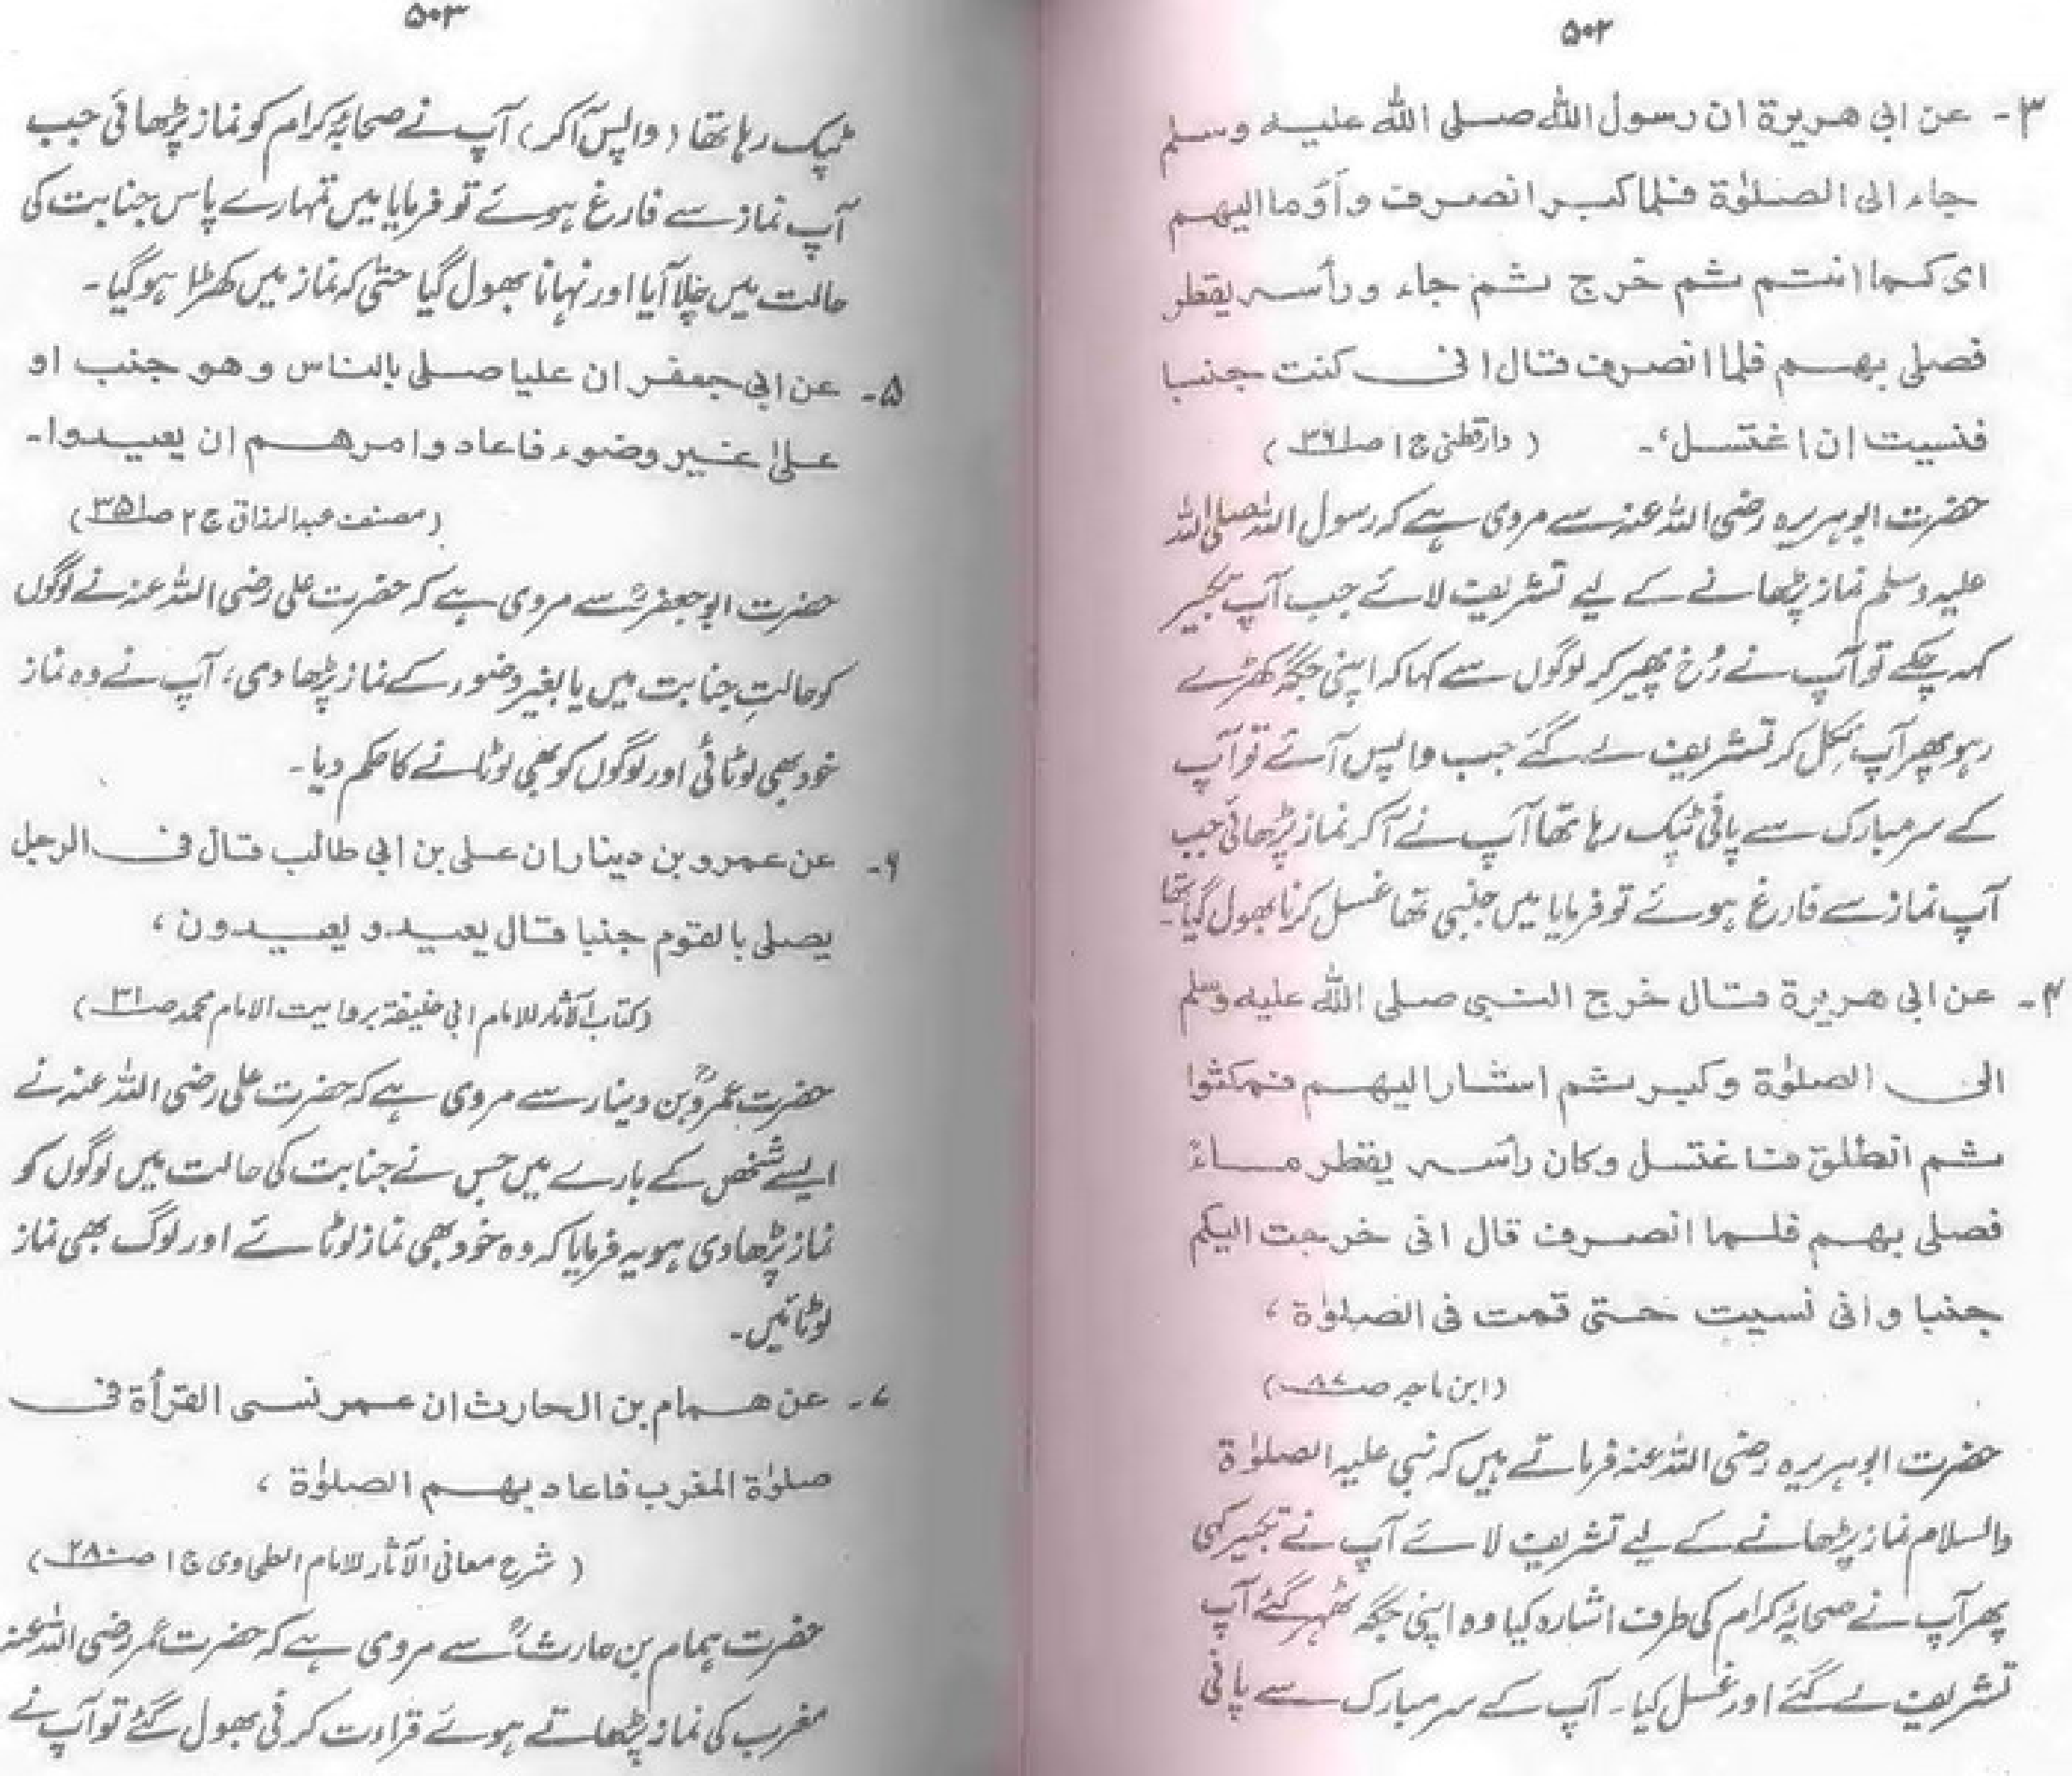 ۵۰۲
۳۔ عن ابی هریرة ان رسول الله صلی الله علیه وسلم
جاء الی الصلوٰة فلما کبر انصرف واَوْما الیهم
ای کما انتم ثم خرج ثم جاء ورأسه یقطر
فصلی بهم فلما انصرف قال انی کنت جنبا
فنسیت ان اغتسل،۔ (دارقطنی ج۱ ص۳۶۱)
حضرت ابوہریرہ رضی اللہ عنہ سے مروی ہے کہ رسول اللہ صلی اللہ
علیہ وسلم نماز پڑھانے کے لیے تشریف لائے جب آپ تکبیر
کہہ چکے تو آپ نے رُخ پھیر کر لوگوں سے کہا کہ اپنی جگہ کھڑے
رہو پھر آپ نکل کر تشریف لے گئے جب واپس آئے تو آپ
کے سر مبارک سے پانی ٹپک رہا تھا آپ نے آکر نماز پڑھائی جب
آپ نماز سے فارغ ہوئے تو فرمایا میں جنبی تھا غسل کرنا بھول گیا تھا۔
۴۔ عن ابی هریرة قال خرج النبی صلی الله علیه وسلم
الی الصلوٰة وکبر ثم اشار الیهم فمکثوا
ثم انطلق فاغتسل وکان رأسه یقطر ماءً
فصلی بهم فلما انصرف قال انی خرجت الیکم
جنبا وانی نسیت حتی قمت فی الصلوٰة،
(ابن ماجہ ص۸۷)
حضرت ابوہریرہ رضی اللہ عنہ فرماتے ہیں کہ نبی علیہ الصلوٰة
والسلام نماز پڑھانے کے لیے تشریف لائے آپ نے تکبیر کہی
پھر آپ نے صحابۂ کرام کی طرف اشارہ کیا وہ اپنی جگہ ٹھہر گئے آپ
تشریف لے گئے اور غسل کیا۔ آپ کے سر مبارک سے پانی
۵۰۳
ٹپک رہا تھا (واپس آکر) آپ نے صحابۂ کرام کو نماز پڑھائی جب
آپ نماز سے فارغ ہوئے تو فرمایا میں تمہارے پاس جنابت کی
حالت میں چلا آیا اور نہانا بھول گیا حتیٰ کہ نماز میں کھڑا ہوگیا۔
۵۔ عن ابی جعفر ان علیا صلی بالناس وهو جنب او
علیٰ غیر وضوء فاعاد وامرهم ان یعیدوا۔
(مصنف عبدالرزاق ج۲ ص۳۵۱)
حضرت ابوجعفرؒ سے مروی ہے کہ حضرت علی رضی اللہ عنہ نے لوگوں
کو حالتِ جنابت میں یا بغیر وضوء کے نماز پڑھا دی، آپ نے وہ نماز
خود بھی لوٹائی اور لوگوں کو بھی لوٹانے کا حکم دیا۔
۶۔ عن عمرو بن دینار ان علی بن ابی طالب قال فی الرجل
یصلی بالقوم جنبا قال یعید و یعیدون،
(کتاب الآثار للامام ابی حنیفة بروایت الامام محمد ص۳۱)
حضرت عمروؒ بن دینار سے مروی ہے کہ حضرت علی رضی اللہ عنہ نے
ایسے شخص کے بارے میں جس نے جنابت کی حالت میں لوگوں کو
نماز پڑھا دی ہو یہ فرمایا کہ وہ خود بھی نماز لوٹائے اور لوگ بھی نماز
لوٹائیں۔
۷۔ عن همام بن الحارث ان عمر نسی القرأة فی
صلوٰة المغرب فاعاد بهم الصلوٰة،
(شرح معانی الآثار للامام الطحاوی ج۱ ص۲۸۰)
حضرت ہمام بن حارثؒ سے مروی ہے کہ حضرت عمر رضی اللہ عنہ
مغرب کی نماز پڑھاتے ہوئے قراءت کرنی بھول گئے تو آپ نے